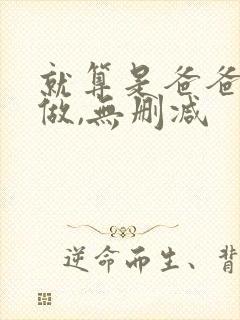 就算是爸爸
做,無删减
逆命而生、背